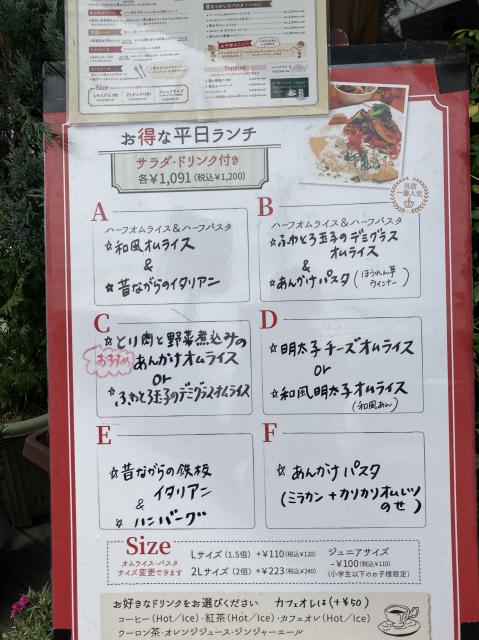 Size
Topping
お得な平日ランチ
サラダ・ドリンク付き
各￥1,091(税込¥1,200)
当店
一番人気
A
ハーフオムライス&ハーフパスタ
☆和風オムライス
&
☆昔ながらのイタリアン
B
ハーフオムライス&ハーフパスタ
☆ふわとろ玉子のデミグラス
オムライス
&
☆あんかけパスタ(ほうれん草
ウインナー)
C
☆とり肉と野菜煮込みの
おすすめ あんかけオムライス
or
☆ふわとろ玉子のデミグラスオムライス
D
☆明太子チーズオムライス
or
☆和風明太子オムライス
(和風あん)
E
☆昔ながらの鉄板
イタリアン
&
☆ハンバーグ
F
☆あんかけパスタ
(ミラカン+カリカリオムレツ
のせ)
Size
オムライス・パスタ
サイズ変更できます
Lサイズ(1.5倍) +¥110(税込¥120)
2Lサイズ(2倍) +¥223(税込¥240)
ジュニアサイズ
-¥100(税込¥110)
(小学生以下のお子様限定)
お好きなドリンクをお選びください カフェオレは(+¥50)
コーヒー(Hot/Ice)・紅茶(Hot/Ice)・カフェオレ(Hot/Ice)
ウーロン茶・オレンジジュース・ジンジャーエール